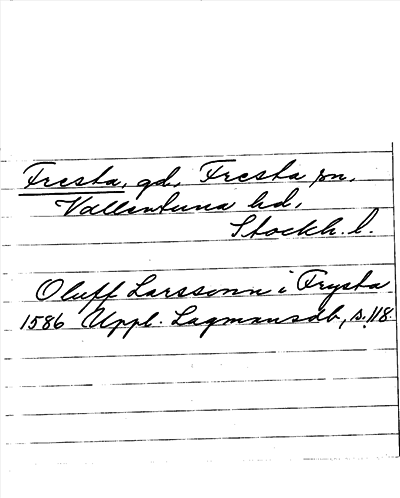 Fresta, gd, Fresta sn,
Vallentuna hd,
Stockh. l.
Oluff Larssonn i Frysta
1586 Uppl. Lagmansdb, s. 118